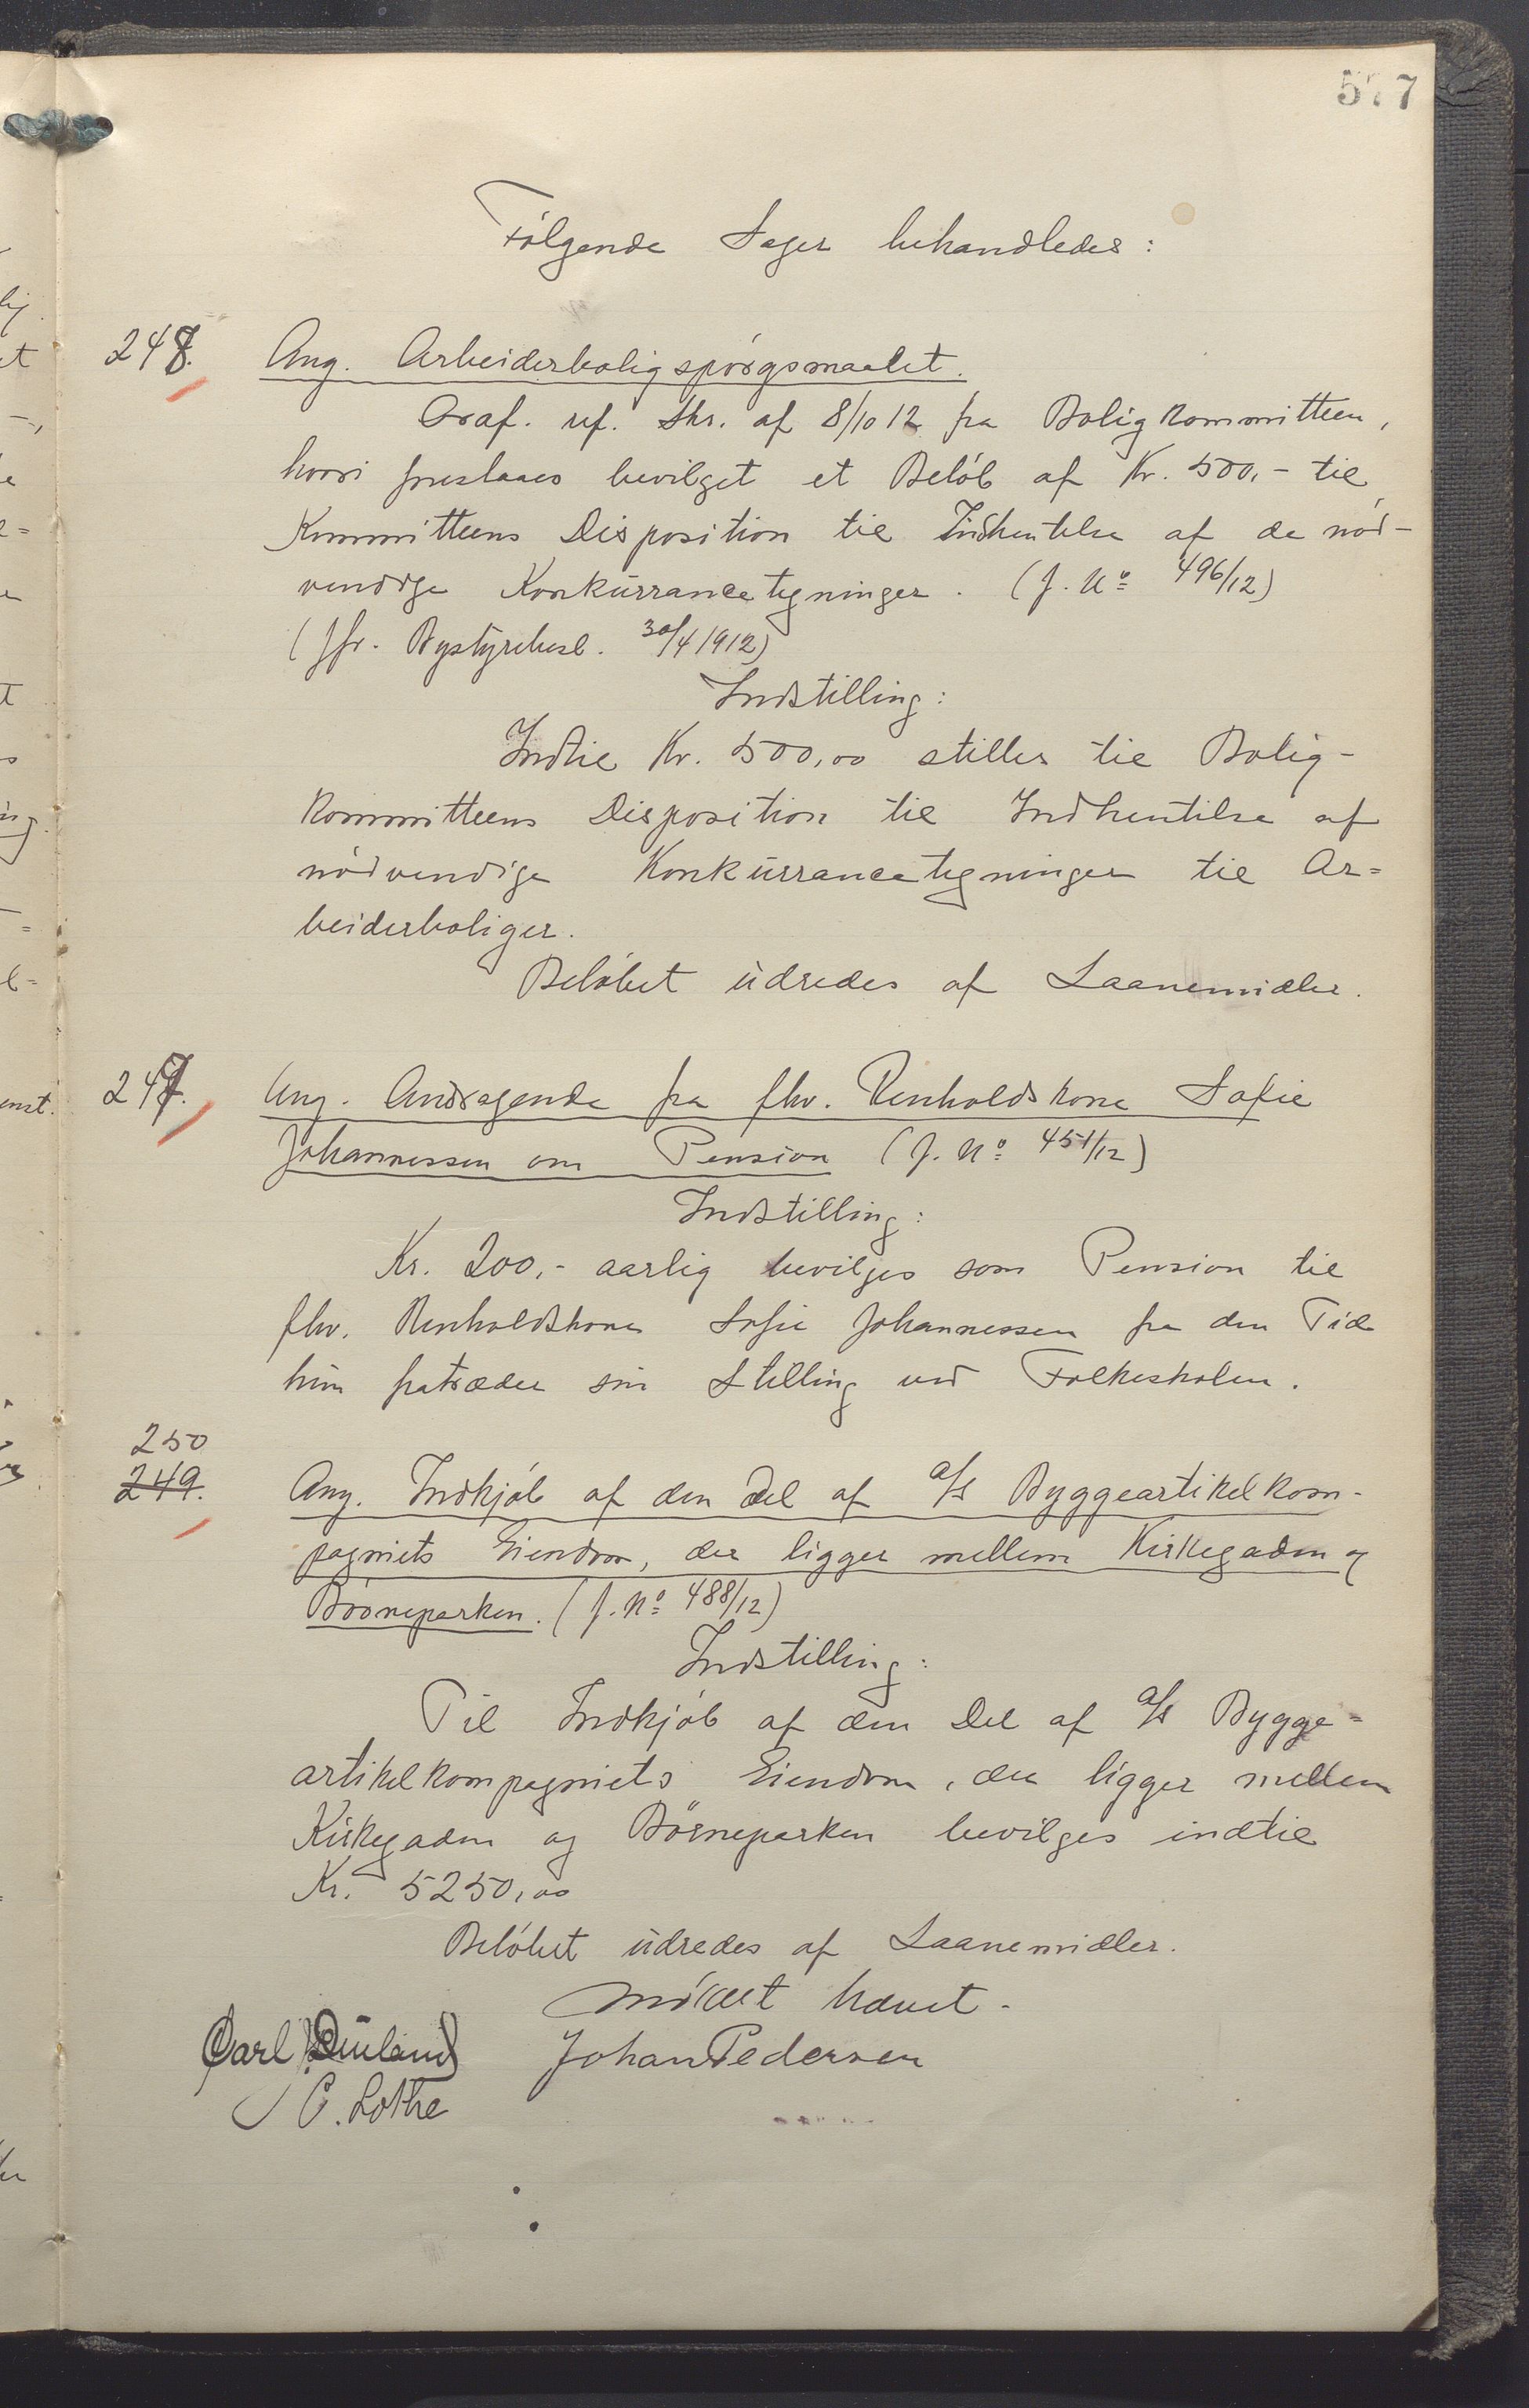 577
Følgende Sager behandledes:
248. Ang. Arbeiderboligspørgsmaalet.
Ordf. ref. Skr. af 8/10 12 fra Boligkommitteen,
hvori foreslaaes bevilget et Beløb af Kr. 500,- til
Kommitteens Disposition til Indhentelse af de nød-
vendige Konkurrancetegninger. (J. No 496/12)
(Jfr. Bystyrebesl. 30/4 1912)
Indstilling:
Indtil Kr. 500,00 stilles til Bolig-
kommitteens Disposition til Indhentelse af
nødvendige Konkurrancetegninger til Ar=
beiderboliger.
Beløbet udredes af Laanemidler.
Ang. Andragende fra fhv. Renholdskone Sofie
Johannessen om Pension (J. No 451/12)
Indstilling:
Kr. 200,- aarlig bevilges som Pension til
fhv. Renholdskone Sofie Johannessen fra den Tid
hun fratræder sin Stilling ved Folkeskolen.
250
249. Ang. Indkjøb af den Del af A/S Byggeartikelkom-
pagniets Eiendom, der ligger mellem Kirkegaden og
Børneparken. (J. No 488/12)
Indstilling:
Til Indkjøb af den Del af A/S Bygge=
artikelkompagniets Eiendom, der ligger mellem
Kirkegaden og Børneparken bevilges indtil
Kr. 5250,00
Beløbet udredes af Laanemidler.
Mødet hævet.
Carl Johan Pedersen
C. Lothe